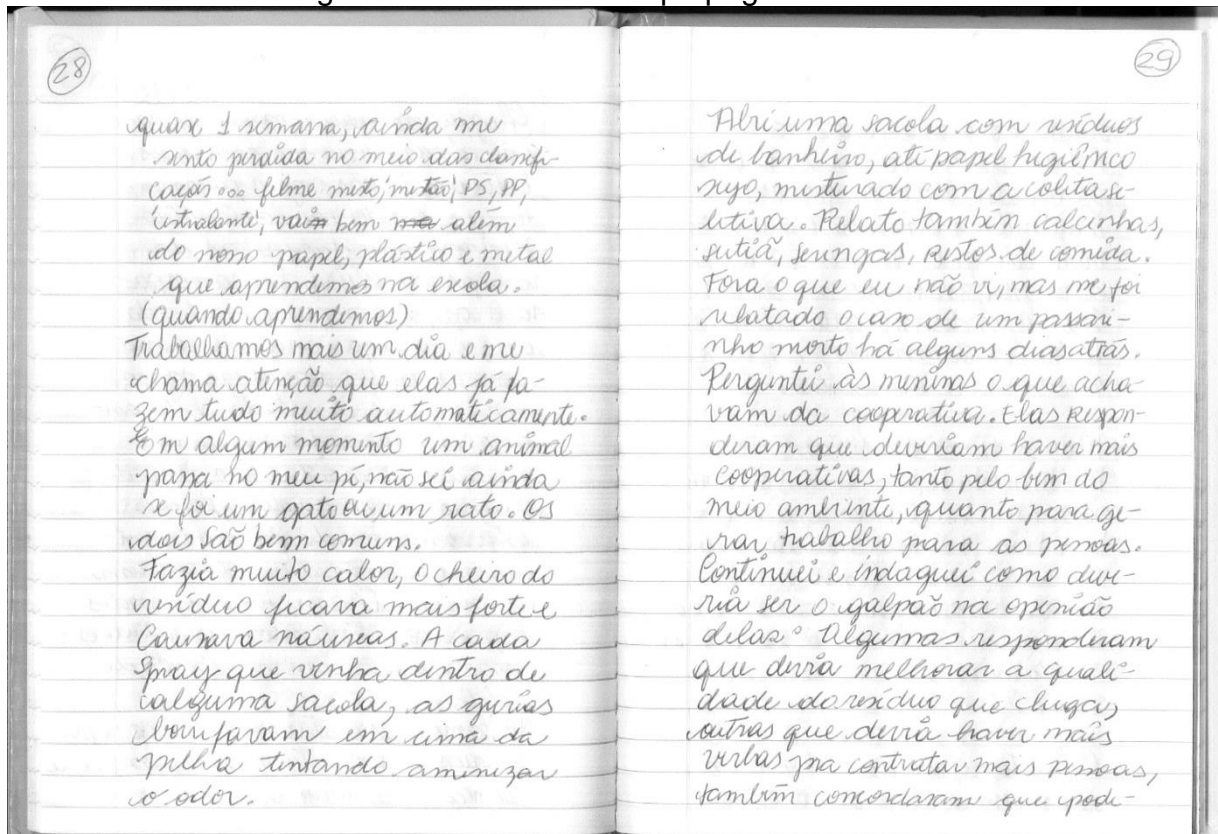 28
quase 1 semana, ainda me
sinto perdida no meio das classifi-
cações... filme misto, 'mistão', PS, PP,
'estralante', vai bem além
do nosso papel, plástico e metal
que aprendemos na escola.
(quando aprendemos)
Trabalhamos mais um dia e me
chama atenção que elas já fa-
zem tudo muito automaticamente.
Em algum momento um animal
passa no meu pé, não sei ainda
se foi um gato ou um rato. Os
dois são bem comuns.
Fazia muito calor, o cheiro do
resíduo ficava mais forte e
causava náuseas. A cada
Spray que vinha dentro de
alguma sacola, as gurias
borrifavam em cima da
pilha tentando amenizar
o odor.
29
Abri uma sacola com resíduos
de banheiro, até papel higiênico
sujo, misturado com a coleta se-
letiva. Relato também calcinhas,
sutiã, seringas, restos de comida.
Fora o que eu não vi, mas me foi
relatado o caso de um passari-
nho morto há alguns dias atrás.
Perguntei às meninas o que acha-
vam da cooperativa. Elas respon-
deram que deveriam haver mais
cooperativas, tanto pelo bem do
meio ambiente, quanto para ge-
rar trabalho para as pessoas.
Continuei e indaguei como deve-
ria ser o galpão na openião
delas. Algumas responderam
que devia melhorar a quali-
dade do resíduo que chega,
outras que devia haver mais
verbas pra contratar mais pessoas,
também concordaram que pode-